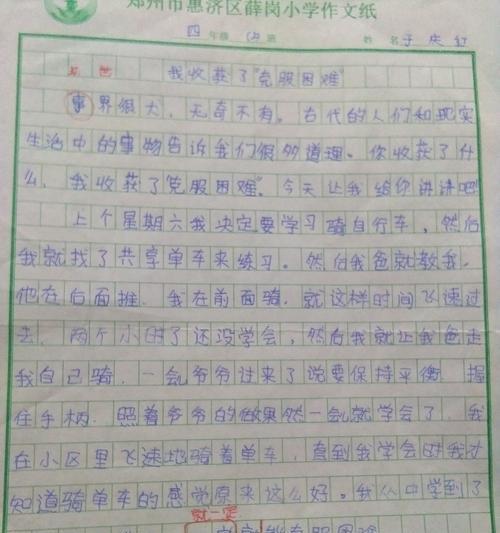 郑州市惠济区薛岗小学作文纸
四年级 班 姓名
世世 我收获了“克服困难”
事界很大,无奇不有。古代的人们和现实
生活中的事物告诉我们很多道理。你收获了什
么,我收获了“克服困难”。今天让我给你讲讲吧!
上个星期六我决定要学习骑自行车,然后
我就找了共享单车来练习。然后我爸就教我,
他在后面推,我在前面骑,就这样时间飞速过
去,两个小时了还没学会,然后我就让我爸走
我自己骑,一会爷爷过来了说要保持平衡,握
住手柄,照着爷爷的做果然一会就学会了,我
在小区里飞速地骑着单车,直到我学会时我才
知道骑单车的感觉原来这么好。我从中学到了
就一定
克服困难